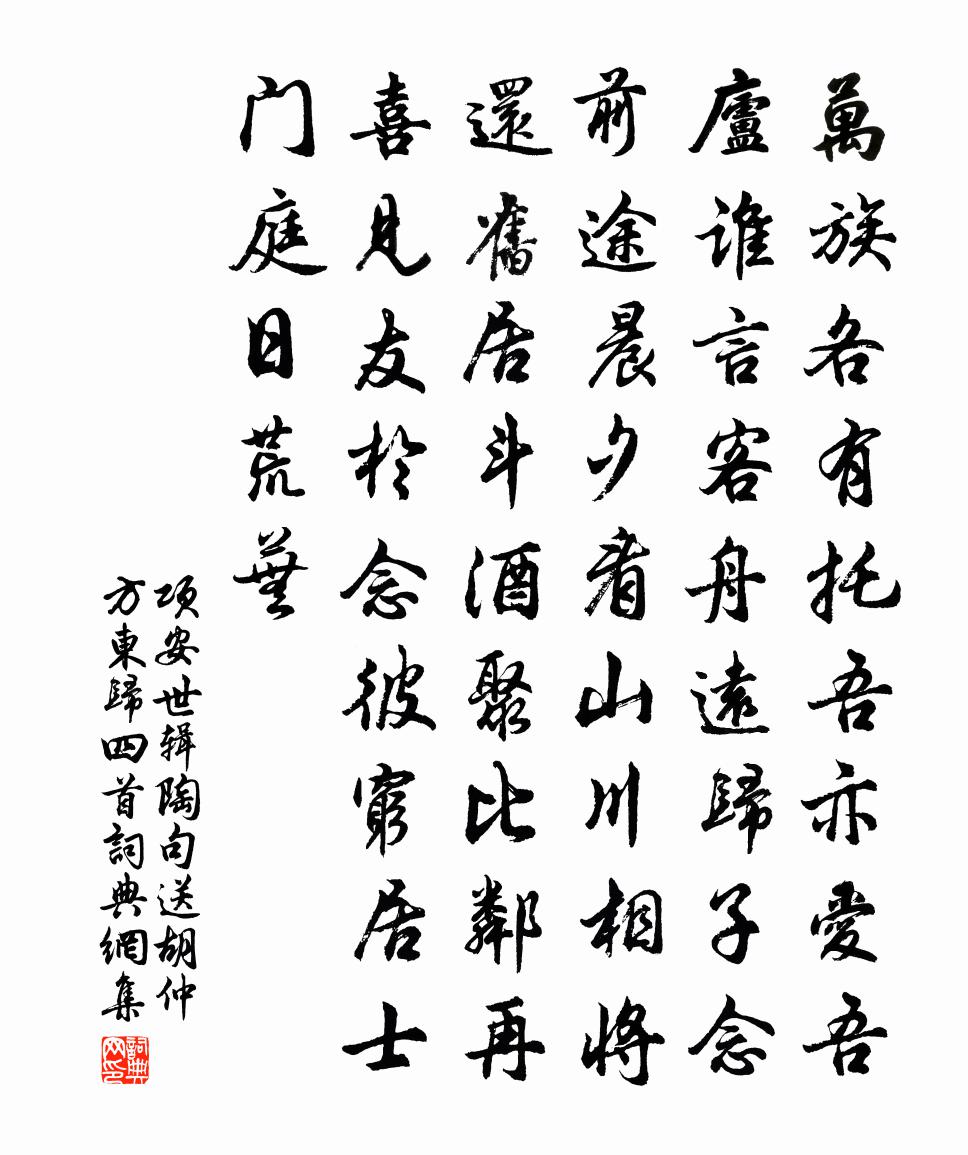 萬族各有托吾亦愛吾
廬誰言客舟遠歸子念
前途晨夕看山川相將
還舊居斗酒聚比鄰再
喜見友於念彼窮居士
门庭日荒蕪
项安世辑陶句送胡仲
方東歸四首詞典網集
詞典网印